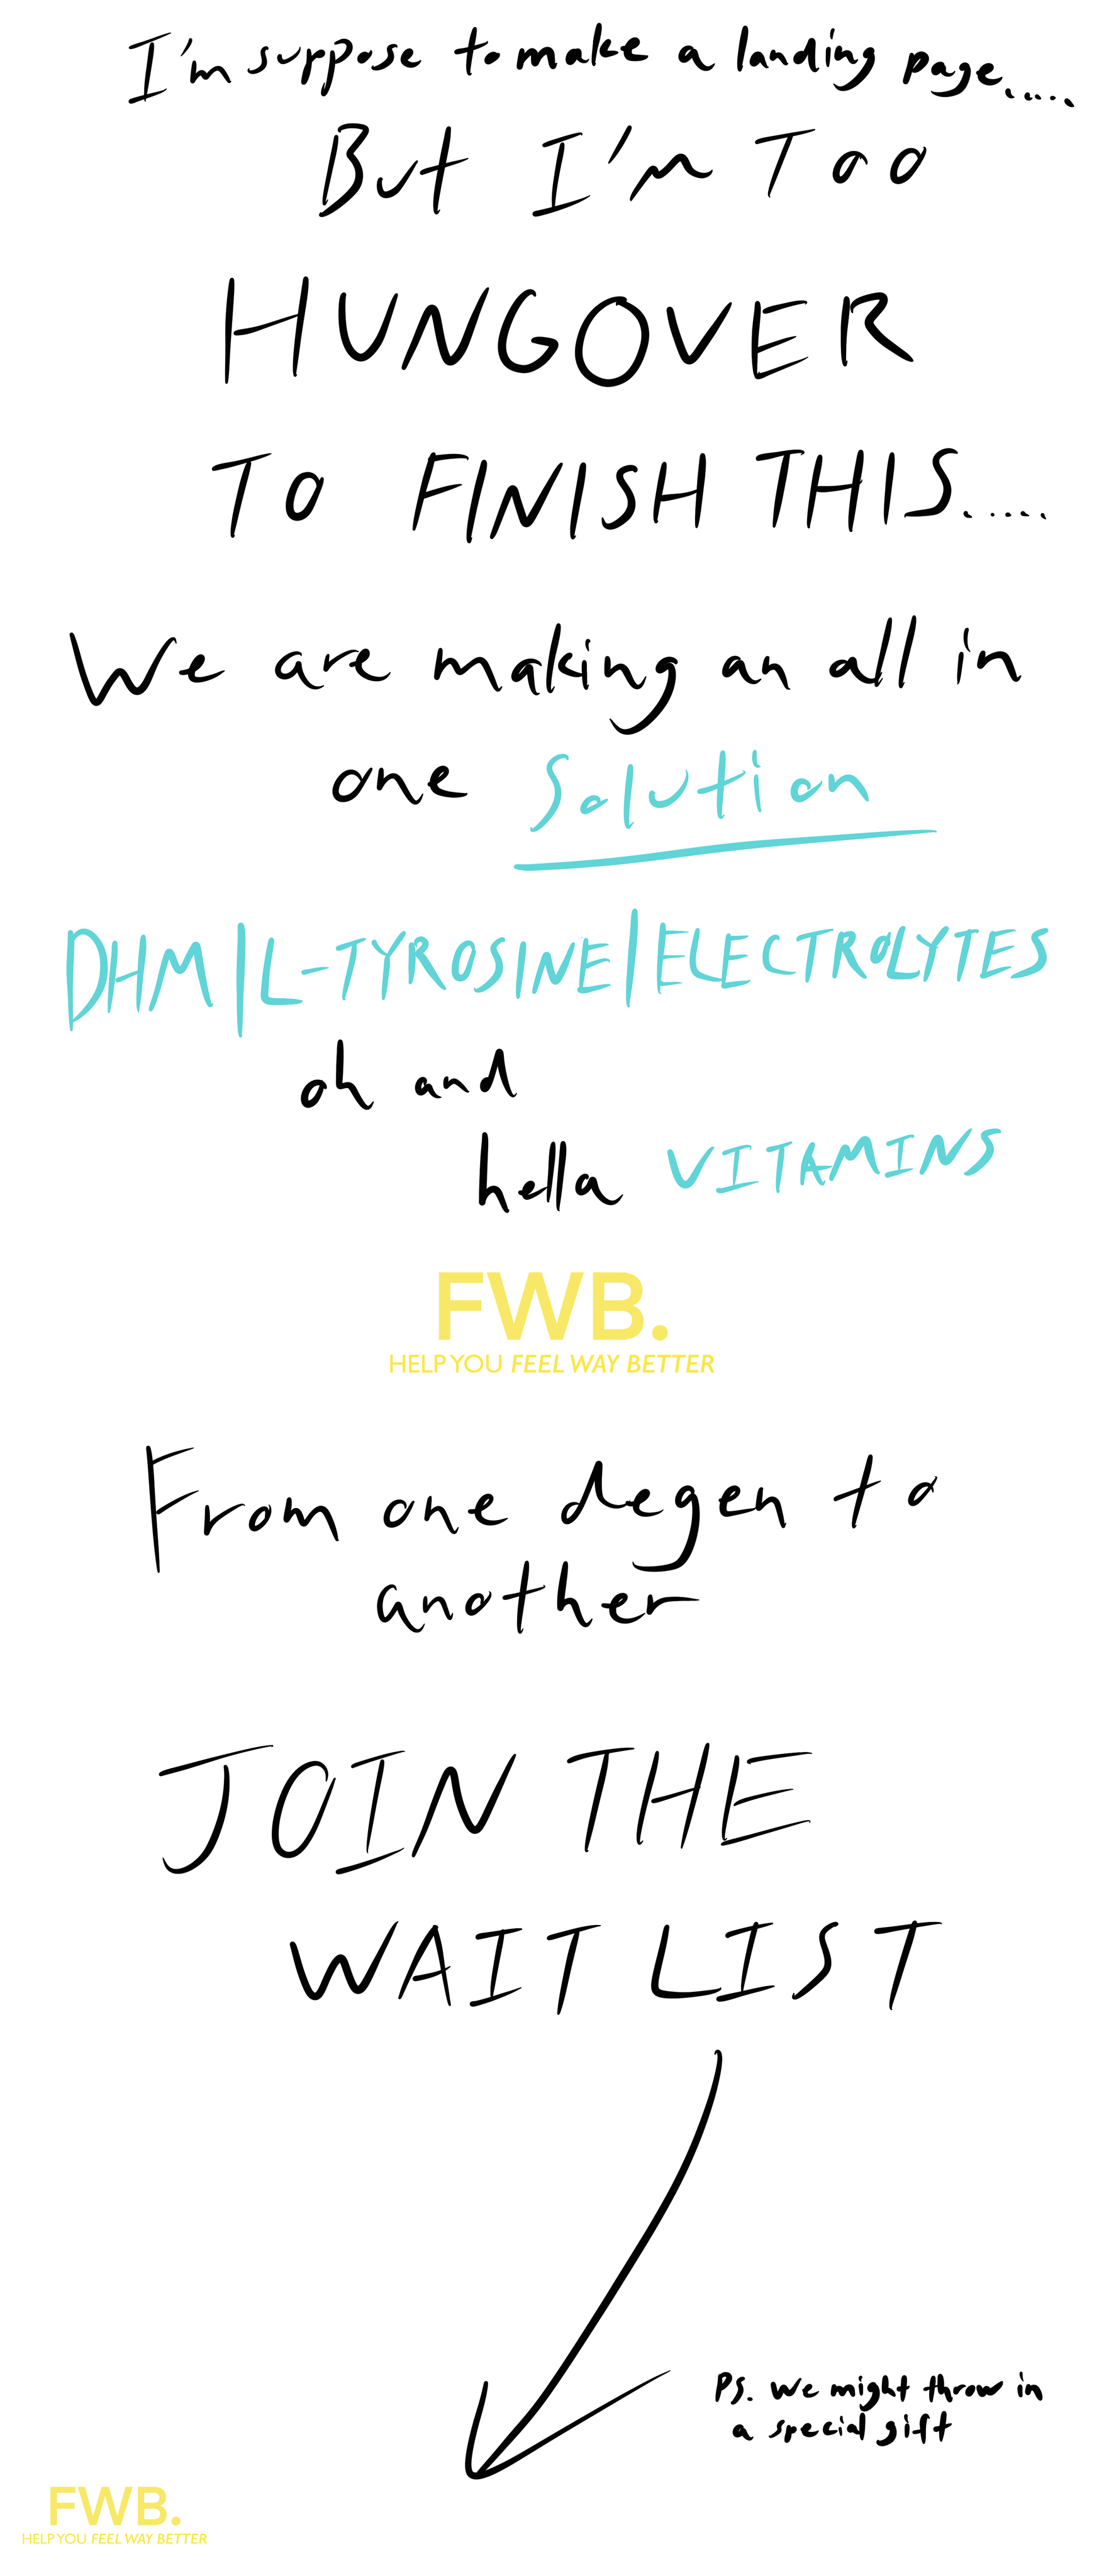 I'm suppose to make a landing page.....
But I'm Too
HUNGOVER
TO FINISH THIS.....
We are making an all in
one Solution
DHM|L-TYROSINE|ELECTROLYTES
oh and
hella VITAMINS
FWB.
HELP YOU FEEL WAY BETTER
From one degen to
another
JOIN THE
WAIT LIST
PS. We might throw in
a special gift
FWB.
HELP YOU FEEL WAY BETTER